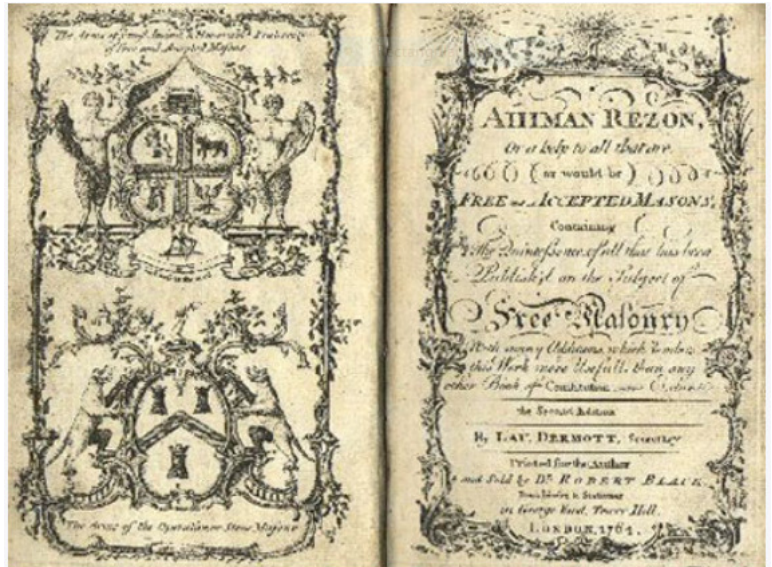 The Arms of ye most Ancient & Honorable Fraternity
of Free and Accepted Masons
The Arms of the Operative or Stone Masons
AHIMAN REZON,
Or a help to all that are,
(or would be)
FREE and ACCEPTED MASONS,
Containing
The Quintessence of all that has been
Publish'd on the Subject of
Free Masonry
With many Additions, which Renders
this Work more Usefull, than any
other Book of Constitution now Extant
the Second Edition
By LAU. DERMOTT, Secretary
Printed for the Author
and Sold by Dr. ROBERT BLACK
Bookbinder & Stationer
in George Yard, Tower Hill.
LONDON, 1764.